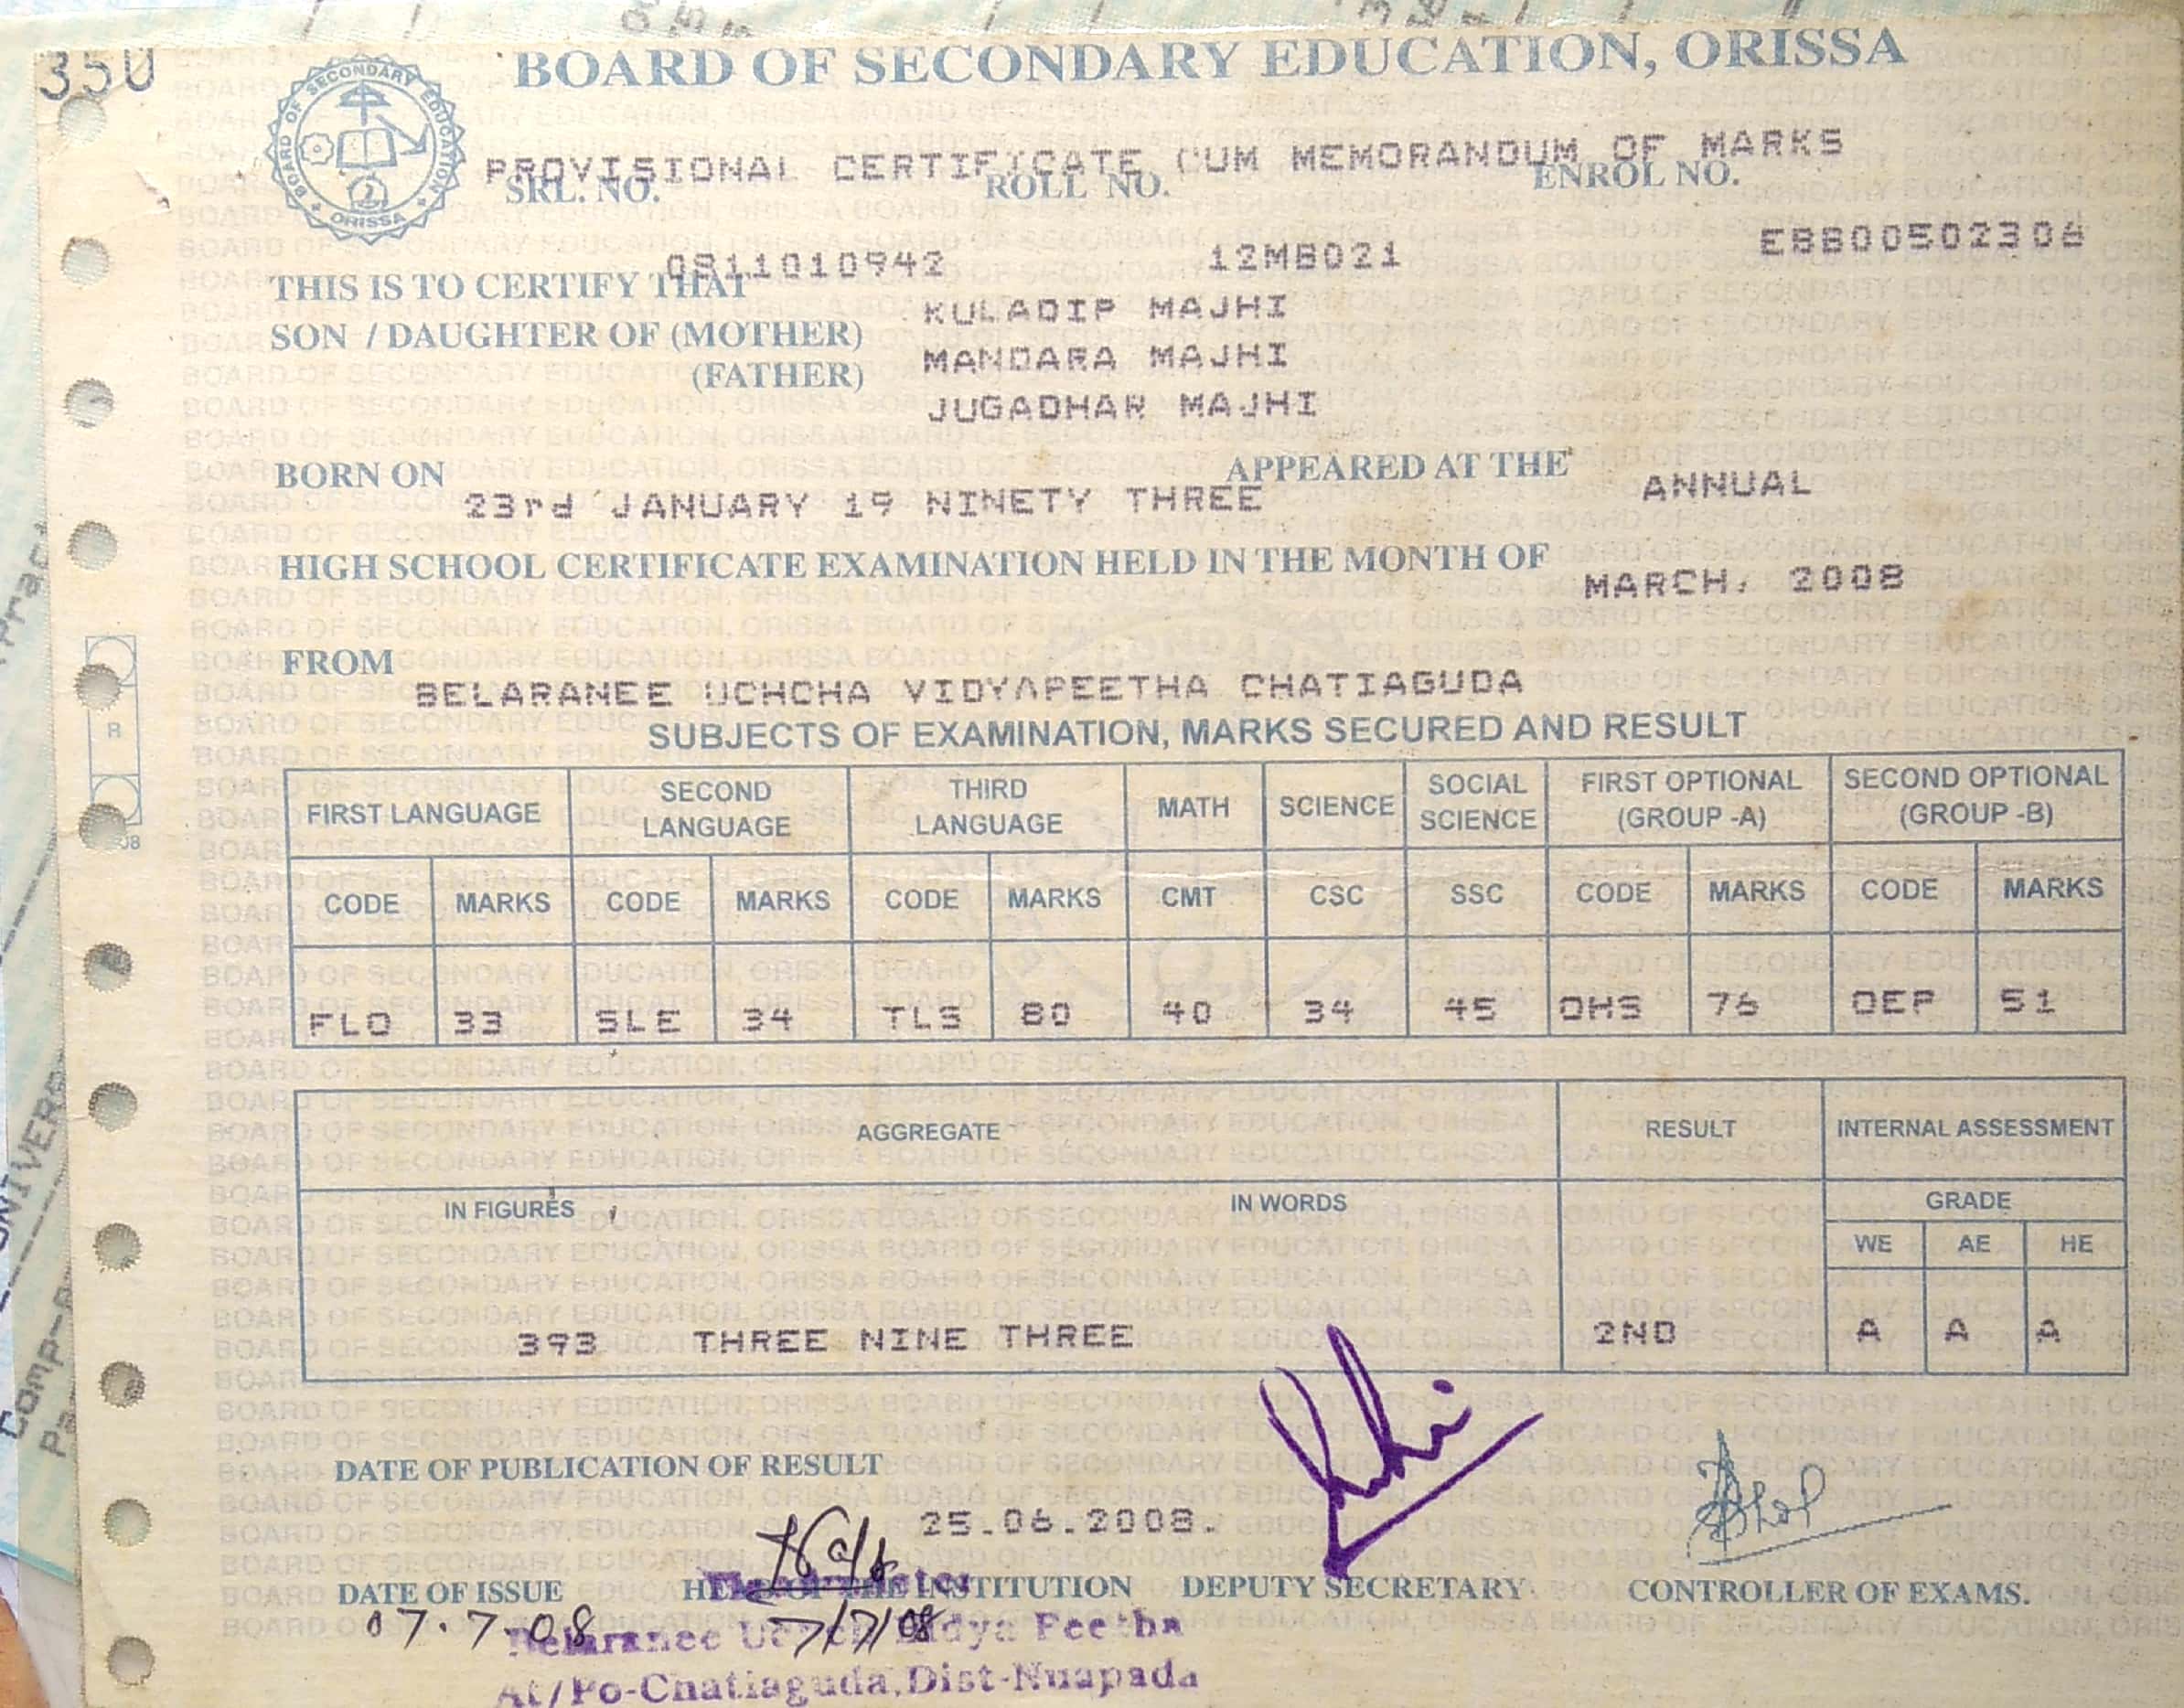 350
BOARD OF SECONDARY EDUCATION, ORISSA
BOARD OF SECONDARY EDUCATION
ORISSA
PROVISIONAL CERTIFICATE CUM MEMORANDUM OF MARKS
SRL. NO. ROLL NO. ENROL NO.
0811010942 12MB021 EBB00502306
THIS IS TO CERTIFY THAT KULADIP MAJHI
SON / DAUGHTER OF (MOTHER) MANDARA MAJHI
(FATHER) JUGADHAR MAJHI
BORN ON 23rd JANUARY 19 NINETY THREE APPEARED AT THE ANNUAL
HIGH SCHOOL CERTIFICATE EXAMINATION HELD IN THE MONTH OF MARCH, 2008
FROM
BELARANEE UCHCHA VIDYAPEETHA CHATIAGUDA
SUBJECTS OF EXAMINATION, MARKS SECURED AND RESULT
FIRST LANGUAGE SECOND LANGUAGE THIRD LANGUAGE MATH SCIENCE SOCIAL SCIENCE FIRST OPTIONAL (GROUP -A) SECOND OPTIONAL (GROUP -B)
CODE MARKS CODE MARKS CODE MARKS CMT CSC SSC CODE MARKS CODE MARKS
FLO 33 SLE 34 TLS 80 40 34 45 OHS 76 OEP 51
AGGREGATE RESULT INTERNAL ASSESSMENT
IN FIGURES IN WORDS GRADE
WE AE HE
393 THREE NINE THREE 2ND A A A
DATE OF PUBLICATION OF RESULT
25.06.2008.
DATE OF ISSUE HEAD OF THE INSTITUTION DEPUTY SECRETARY CONTROLLER OF EXAMS.
07.7.08 7/7/08
Belaranee Vidya Peetha
At/Po-Chatiaguda, Dist-Nuapada